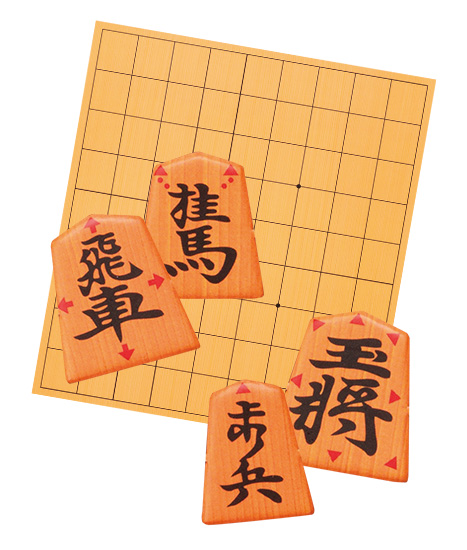 桂馬
飛車
玉将
歩兵